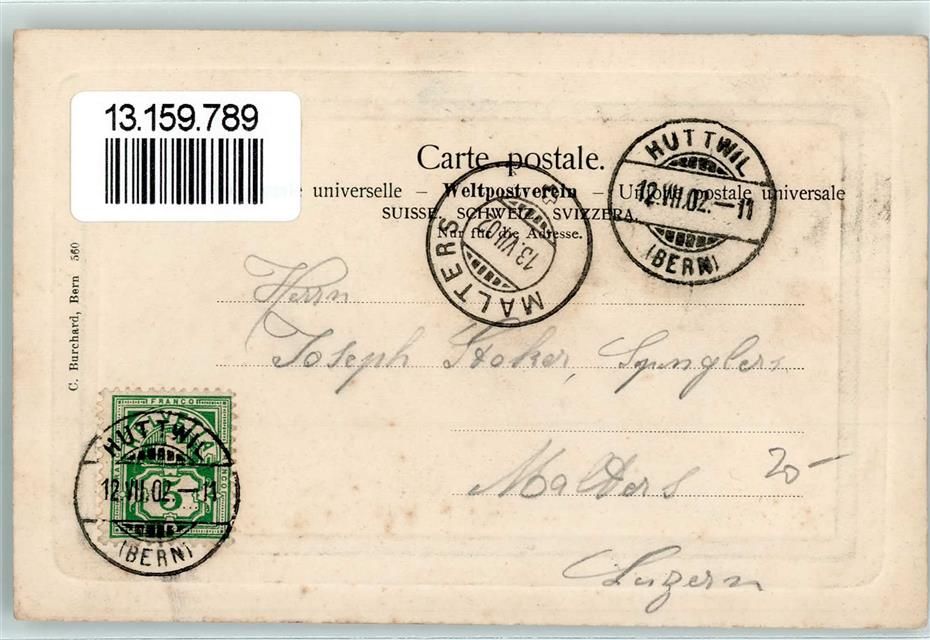 13.159.789
Carte postale.
universelle – Weltpostverein – Union postale universale
SUISSE. SCHWEIZ. SVIZZERA.
Nur für die Adresse.
HUTTWIL
12.VII.02.–11
(BERN)
MALTERS
13.VII.02
C. Burchard, Bern 560
Herrn
Joseph Stoker, Spenglers
Malters
20–
Luzern
FRANCO
HUTTWIL
12.VII.02.–11
5
(BERN)